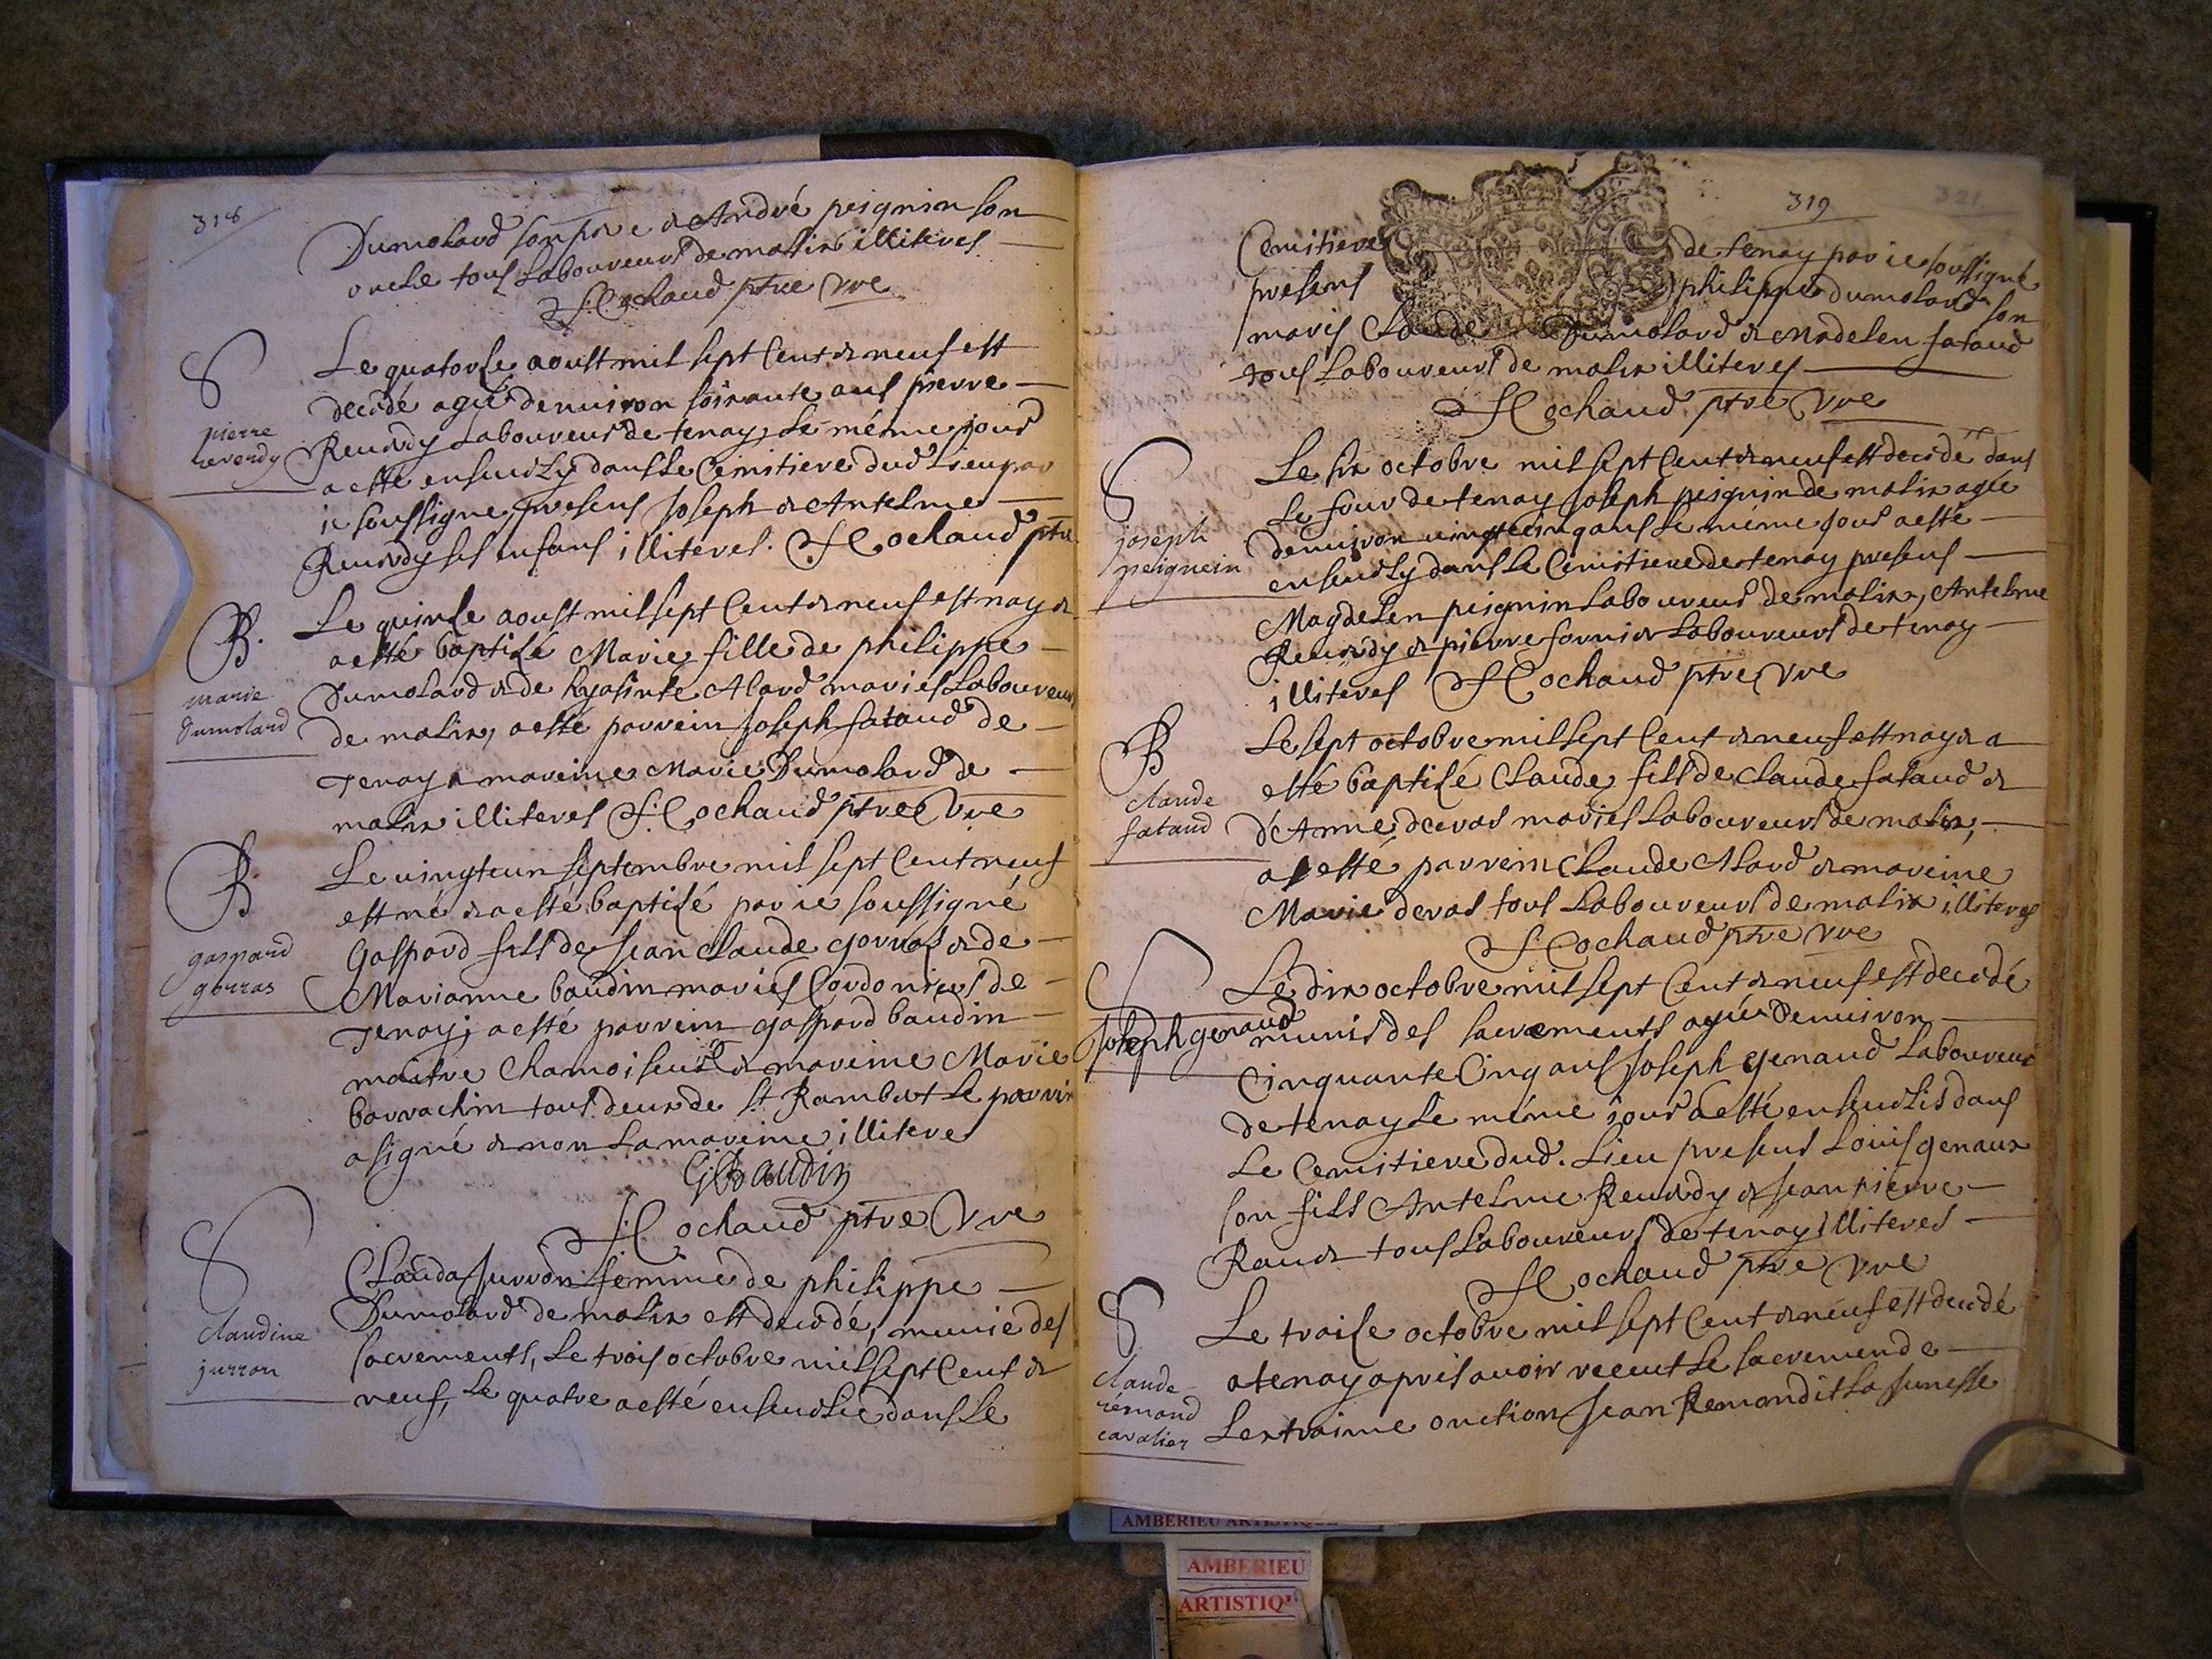 318
Dumolard son pere & André peignin son
oncle tous laboureurs de malix illiteres
F Cochaud ptre Vre
S
pierre
reverdy
Le quatorse aoust mil sept cent & neuf est
decédé agé denuiron soixante ans pierre
Reuerdy laboureur de tenay, le méme jour
a esté enseuely dans le Cemitiere dud lieu par
ie soussigné, presens Joseph & Antelme
Reuerdy ses enfans illiteres. F Cochaud ptre
B.
marie
Dumolard
Le quinse aoust mil sept cent & neuf est nay &
a esté baptisé Marie fille de philippe
Dumolard & de hyasinte Alard mariés laboureurs
de malix, a esté parrein Joseph fataud de
Tenay & mareine Marie Dumolard de
malix illiteres F. Cochaud ptre Vre
B.
gaspard
gorras
Le uingt eun septembre mil sept cent neuf
est né & a esté baptisé par ie soussigné
Gaspard fils de Jean claude gorras & de
Marianne baudin mariés Cordoniers de
Tenay; a esté parrein gaspard baudin
maitre Chamoiseur & mareine Marie
barrachin tous deux de st Rambert le parrin
a signé & non la mareine illitere
G Baudin
F. Cochaud ptre Vre
S
claudine
jurron
Clauda Jurron femme de philippe
Dumolard de malix est decedé, munie des
sacrements, le trois octobre mil sept cent &
neuf, le quatre a esté enseuelie dans le
319
321
Cemitiere de tenay par ie soussigné
presens philippe dumolard son
maris Claude Dumolard & Madelen fataud
tous laboureurs de malix illiteres
F Cochaud ptre Vre
S
joseph
peignein
Le six octobre mil sept cent & neuf est decédé dans
le four de tenay Joseph peignin de malix agée
denuiron uingt cinq ans le méme jour a esté
enseuely dans le Cemitiere de tenay presens
Magdelen peignin laboureur de malix, Antelme
Reuerdy & pierre fornier laboureurs de tenay
illiteres F Cochaud ptre Vre
B
claude
fataud
Le sept octobre mil sept cent & neuf est nay & a
esté baptisé Claude fils de claude fataud &
d'Anne deeras mariés laboureurs de malix,
a esté parrein Claude Alard & mareine
Marie deras tous laboureurs de malix illiteres
F Cochaud ptre Vre
S
Joseph genaud
Le dix octobre mil sept cent & neuf est decédé
munis des sacrements agée denuiron
cinquante cinq ans Joseph genaud laboureur
de tenay le méme jour a esté enseuelis dans
le Cemitiere dud. lieu presens Louis genaux
son fils Antelme Reuerdy & Jean pierre
Raude tous laboureurs de tenay illiteres
F Cochaud ptre Vre
S
claude
rémond
cavalier
Le traise octobre mil sept cent & neuf est decédé
a tenay apres auoir receut le sacremende
lextraime onction Jean Remondit la Junesse
AMBERIEU ARTISTIQUE
AMBERIEU
ARTISTIQ